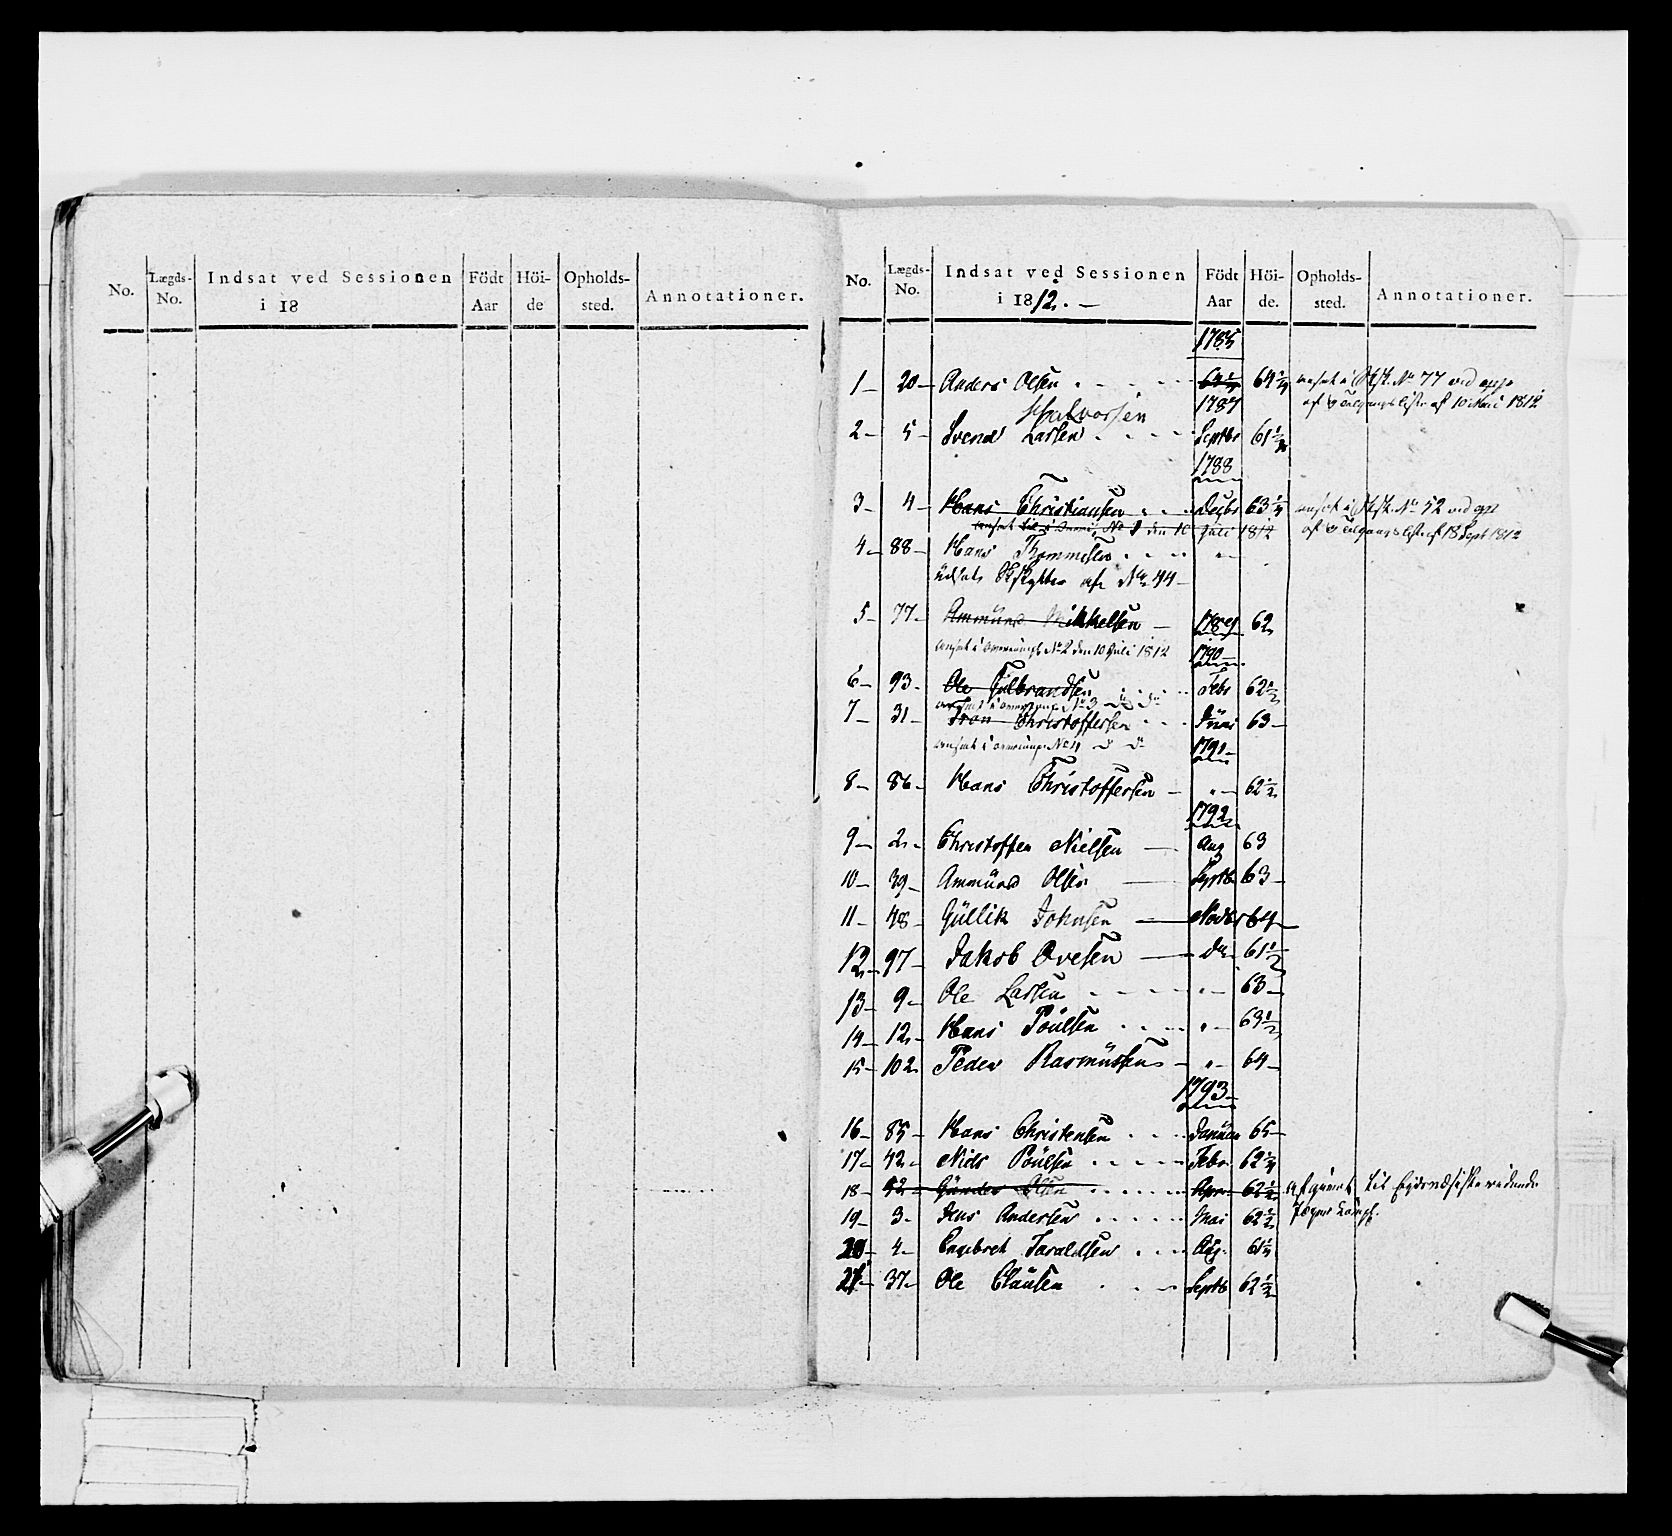 No. Lægds- No. Indsat ved Sessionen i 18 Födt Aar Höi- de Opholds- sted. Annotationer.
No. Lægds- No. Indsat ved Sessionen i 1812. Födt Aar Höi- de. Opholds- sted. Annotationer.
1785
1 20 Anders Olsen 64 1/4 64 1/4 ansat i No 77 ved
af Tilgangsliste af 10 Mai 1812
1787
Halvorsen
2 5 Svend Larsen Septbr 61 1/2
1788
3 4 Hans Christiansen Decbr 63 1/4 ansat i No 52 ved
ansat No 1 den 10 Juli 1812 af Tilgangsliste af 18 Sept 1812
4 88 Hans Thommesen "
No 44
5 77 Ammund Mikkelsen 1789 62
ansat i No 2 den 10 Juli 1812 1790
6 93 Ole Gulbrandsen Febr 62 1/2
ansat i No 3 do do
7 31 Iron Christoffersen Junii 63
ansat i No 4 do do 1791
8 86 Hans Christoffersen " 62 1/2
1792
9 2 Christoffer Nielsen Aug 63
10 39 Ammund Olsen Septb 63
11 48 Güllik Johnsen Novbr 64
12 97 Jakob Ovesen do 61 1/2
13 9 Ole Larsen " 63
14 12 Hans Poulsen " 63 1/2
15 102 Peder Rasmüssen " 64
1793
16 85 Hans Christensen Januar 65
17 42 Niels Poulsen Febr 62 1/4
18 92 Gunder Olsen Apr 62 1/2 til ridende
19 3 Jens Andersen Mai 62 1/2 Jæger
20 4 Engebret Taraldsen Aug. 61 1/4
21 37 Ole Clausen Septb 62 1/2